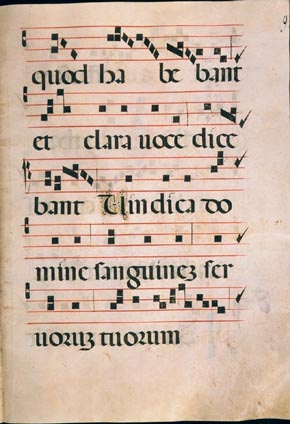 quod ha be bant
et clara uoce dice
bant Uindica do
mine sanguinez ser
uoruz tuorum